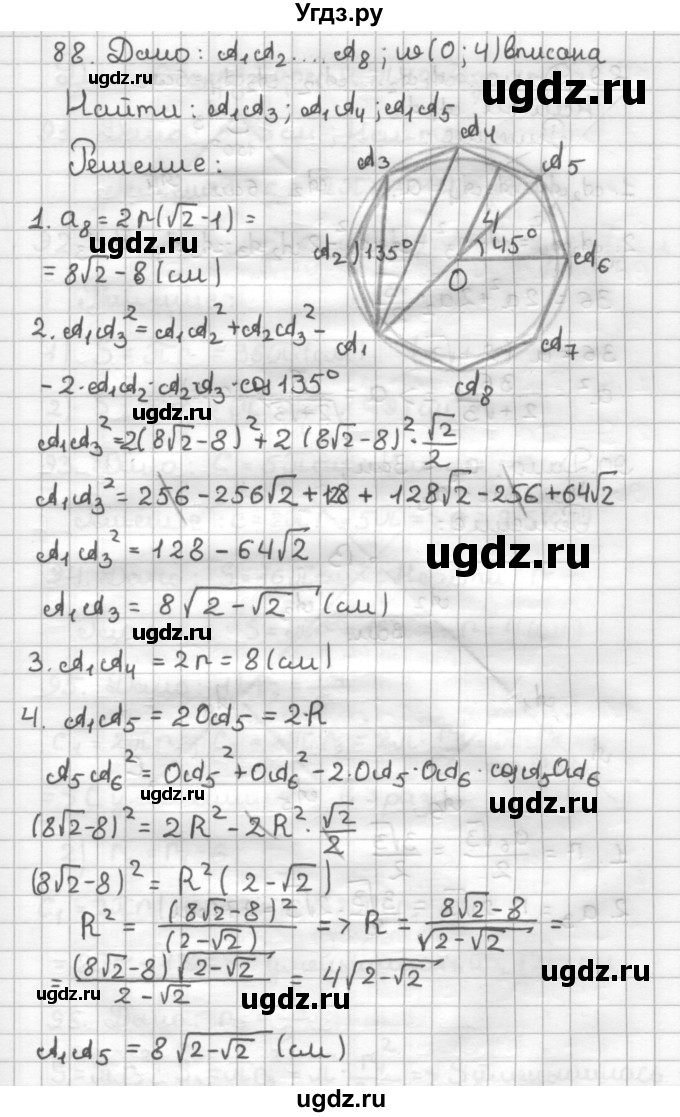 Угдз.ру
88. Дано: A₁A₂....A₈; ω(O; 4) вписана
ugdz.ru
ugdz.ru
Найти: A₁A₃; A₁A₄; A₁A₅
Решение:
A₃ A₄ A₅
1. a₈ = 2r(√2-1) =
ugdz.ru
4
A₂ 135° 45° A₆
O
= 8√2-8 (см)
ugdz.ru
2. A₁A₃² = A₁A₂² + A₂A₃² -
A₁ A₇
A₈
- 2·A₁A₂·A₂A₃·cos135°
ugdz.ru
A₁A₃² = 2(8√2-8)² + 2(8√2-8)²·√2/2
A₁A₃² = 256 - 256√2 + 128 + 128√2 - 256 + 64√2
A₁A₃² = 128 - 64√2
ugdz.ru
A₁A₃ = 8√(2-√2) (см)
ugdz.ru
3. A₁A₄ = 2r = 8 (см)
ugdz.ru
4. A₁A₅ = 2OA₅ = 2·R
A₅A₆² = OA₅² + OA₆² - 2·OA₅·OA₆·cosA₅OA₆
ugdz.ru
ugdz.ru
(8√2-8)² = 2R² - 2R²·√2/2
(8√2-8)² = R²(2-√2)
R² = (8√2-8)²/(2-√2) => R = (8√2-8)/√(2-√2) =
ugdz.ru
= (8√2-8)√(2-√2)/(2-√2) = 4√(2-√2)
ugdz.ru
ugdz.ru
ugdz.ru
A₁A₅ = 8√(2-√2) (см)
ugdz.ru
ugdz.ru
ugdz.ru